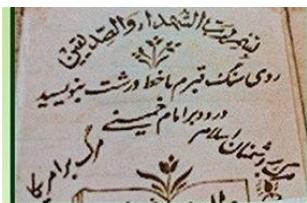 بسم رب الشهداء والصدیقین
روی سنگ قبرم با خط درشت بنویسید
درود بر امام خمینی
مرگ بر دشمنان اسلام
مرگ بر امریکا